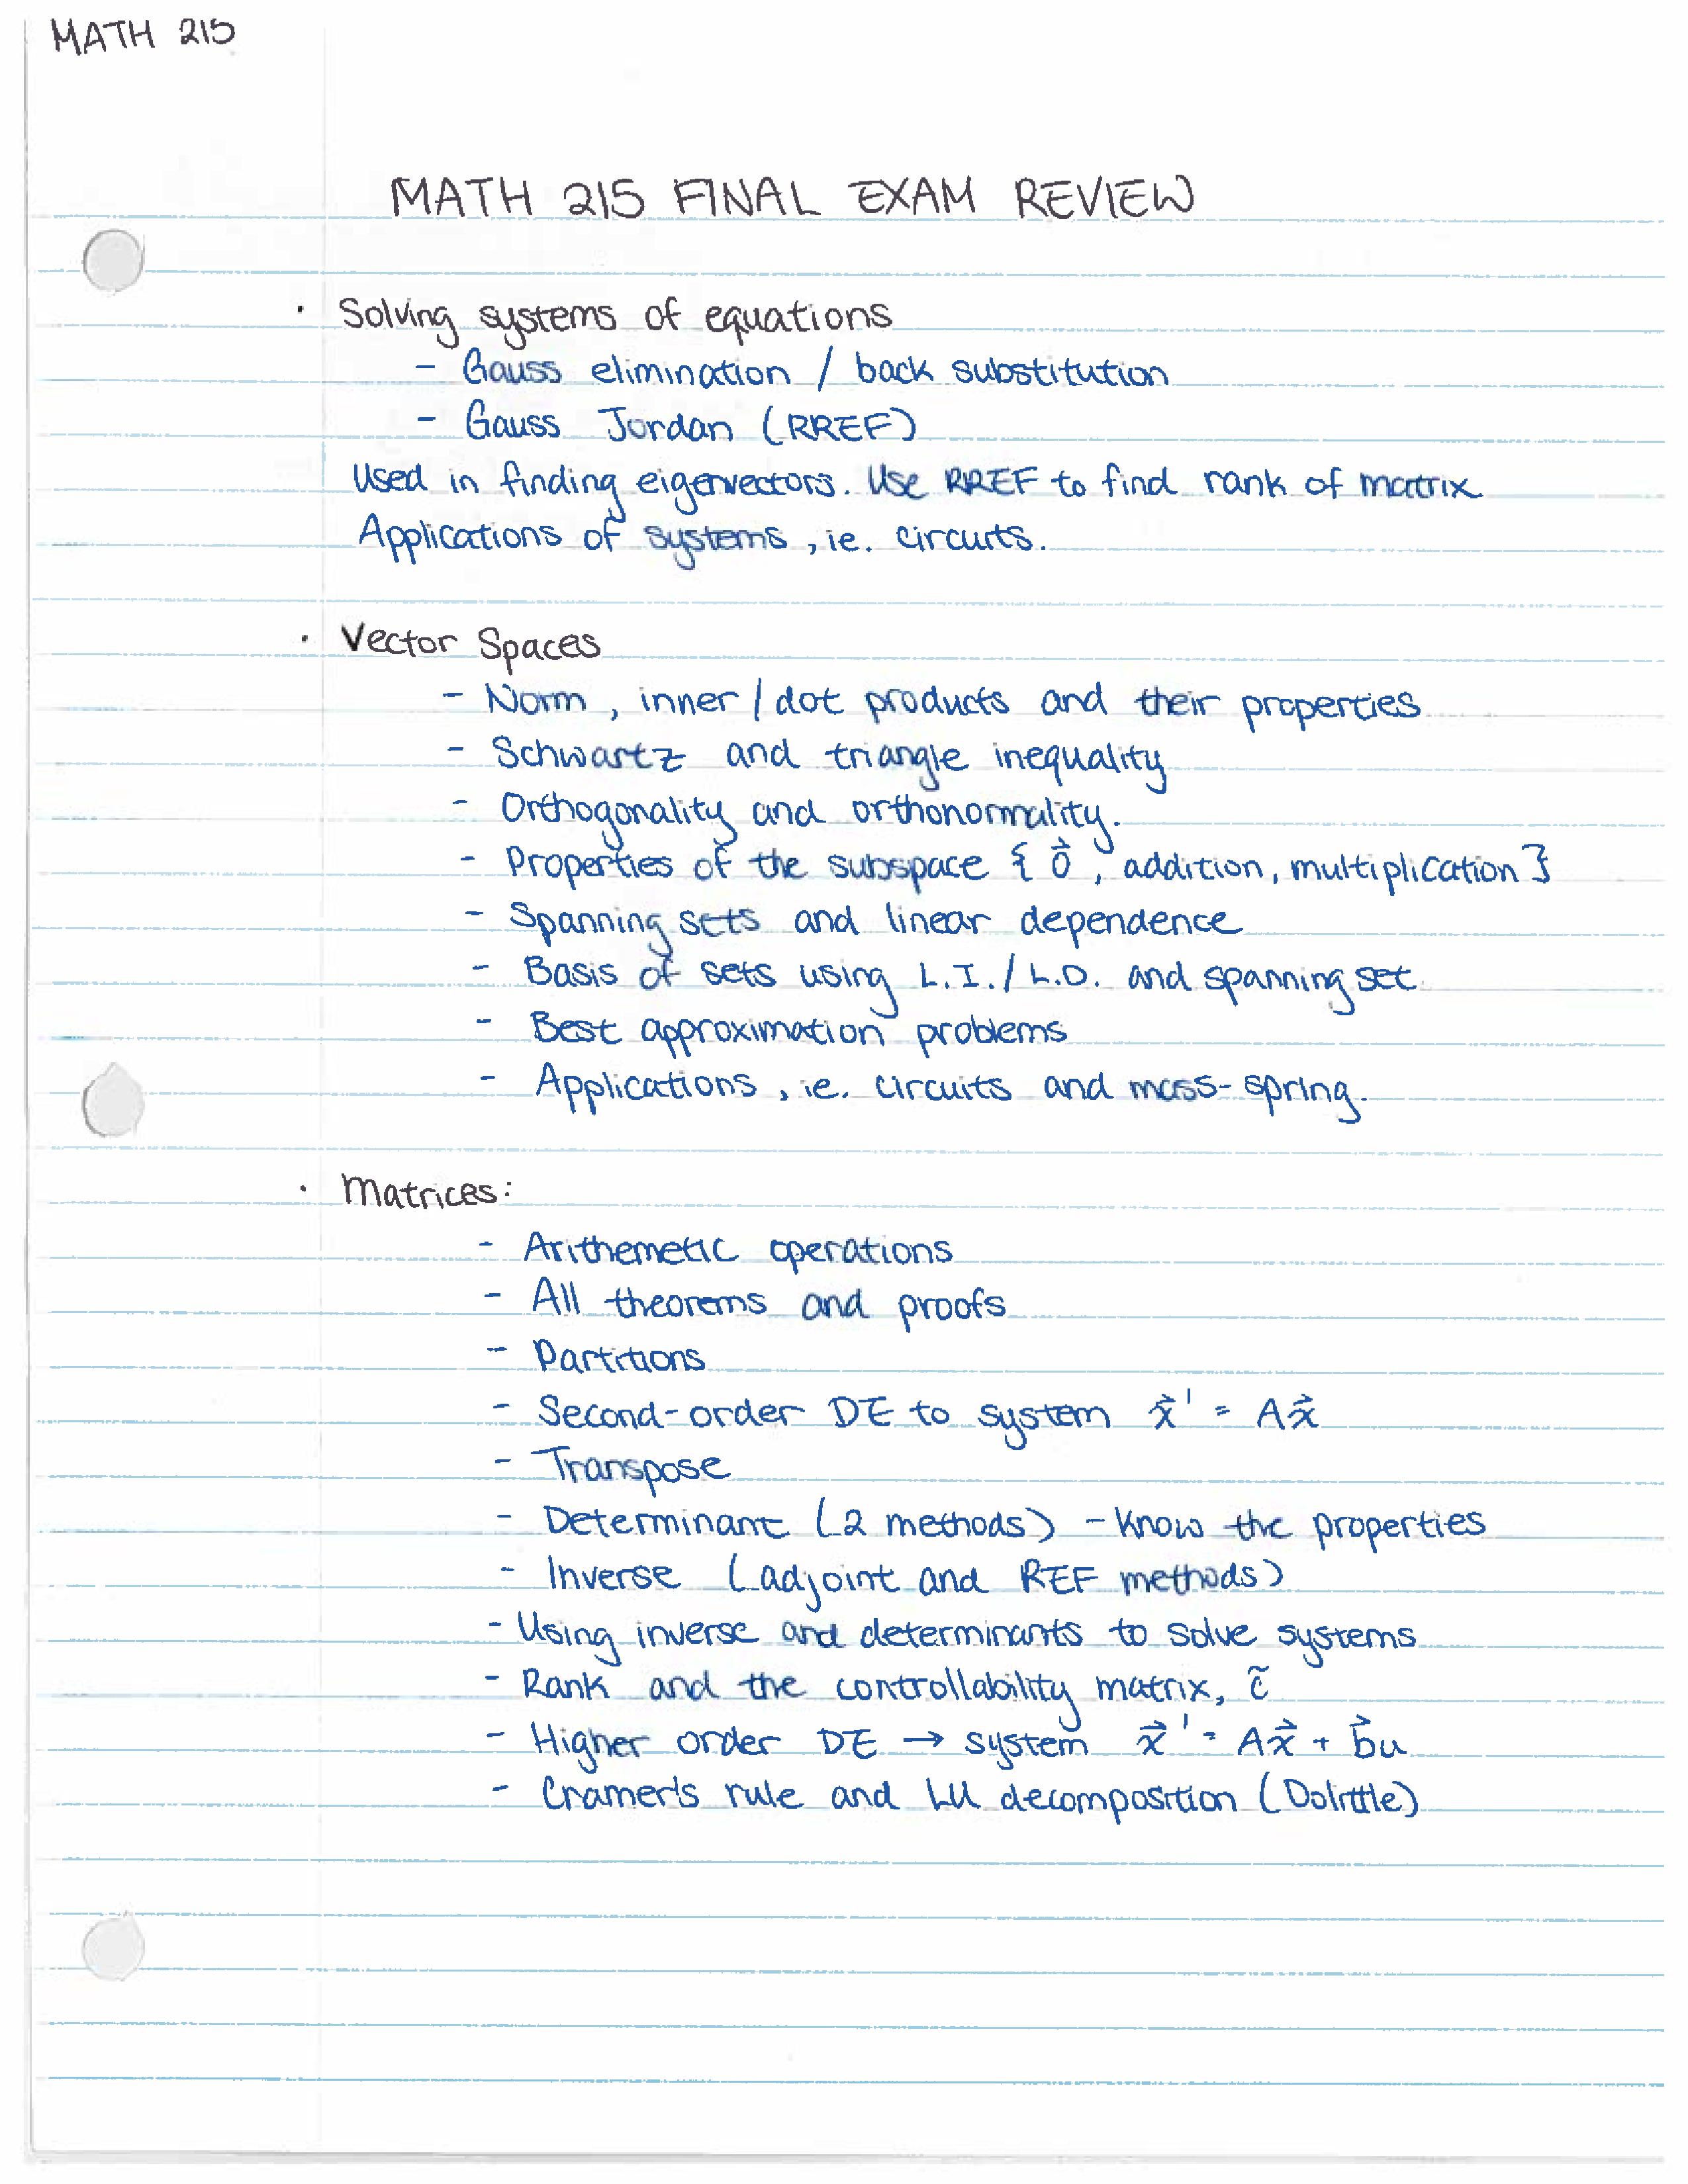 MATH 215
MATH 215 FINAL EXAM REVIEW
· Solving systems of equations
- Gauss elimination / back substitution
- Gauss Jordan (RREF)
Used in finding eigenvectors. Use RREF to find rank of matrix
Applications of systems, ie. circuits.
· Vector Spaces
- Norm, inner / dot products and their properties
- Schwartz and triangle inequality
- Orthogonality and orthonormality.
- Properties of the subspace { 0⃗, addition, multiplication }
- Spanning sets and linear dependence
- Basis of sets using L.I. / L.D. and spanning set
- Best approximation problems
- Applications, ie. circuits and mass-spring.
· Matrices:
- Arithemetic operations
- All theorems and proofs
- Partitions
- Second-order DE to system x⃗' = Ax⃗
- Transpose
- Determinant (2 methods) - Know the properties
- Inverse (adjoint and REF methods)
- Using inverse and determinants to solve systems
- Rank and the controllability matrix, c̃
- Higher order DE → system x⃗' = Ax⃗ + b⃗u
- Cramer's rule and LU decomposition (Dolittle)